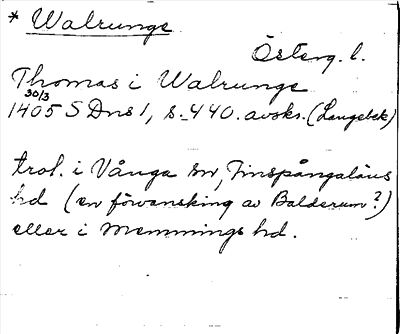 * Walrungs
Österg. l.
Thomas i Walrungs
30/3
1405 SDns 1, s. 440. avskr. (Langebek)
trol. i Vånga sn, Finspångaläns
hd (en förvanskning av Balderum?)
eller i Memmings hd.